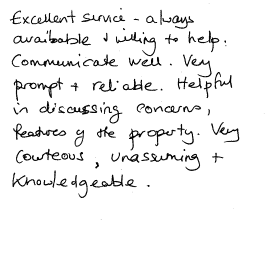 Excellent service - always
available & willing to help.
Communicate well. Very
prompt + reliable. Helpful
in discussing concerns,
features of the property. Very
courteous, unassuming +
knowledgeable.